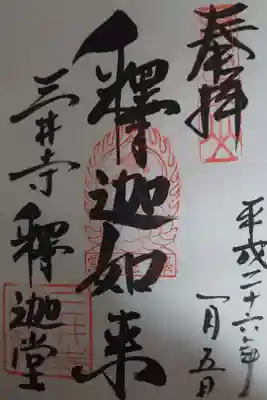 奉拝
平成二十六年
一月五日
釋迦如来
三井寺 釋迦堂